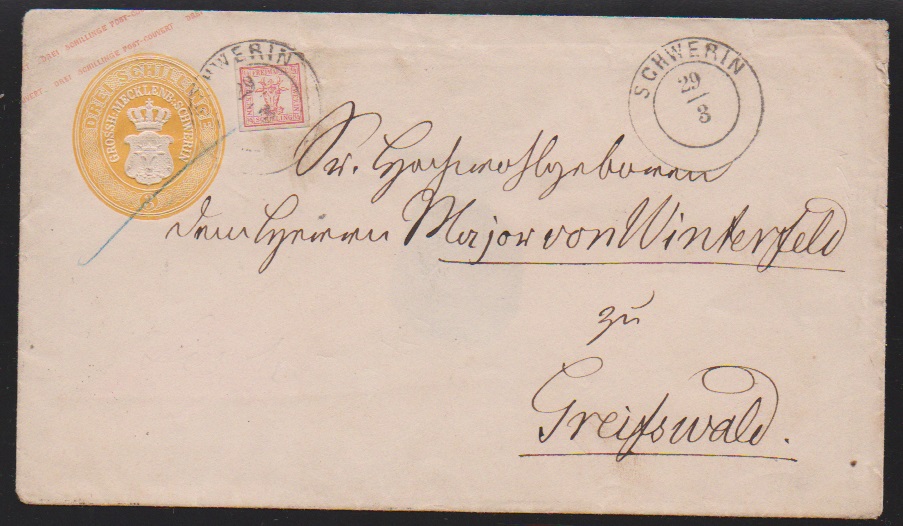 DREI SCHILLINGE POST-COUVERT
DREI SCHILLINGE POST-COUVERT
DREI SCHILLINGE
GROSSH. MECKLENB. SCHWERIN
SCHWERIN
29
SCHWERIN
29
3
Sr. Hochwohlgeboren
dem Herrn Major von Winterfeld
zu
Greifswald.